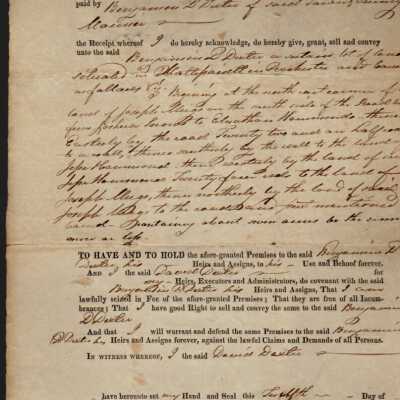 paid by Benjamin D Dexter of said
Mariner
the Receipt whereof I do hereby acknowledge, do hereby give, grant, sell and convey
unto the said Benjamin D Dexter a certain lot of Land
situated in Mattapoisett in Rochester and
as follows Viz. Begining at the north east corner of
land of Joseph Meigs on the north side of the Road
from to Hammonds thence
Easterly by the road Twenty two and an half rods
to a wall, thence northerly by the wall to the land of
Hammond then Westerly by the land of
Hammond Twenty four rods to the land of
Joseph Meigs, thence northerly by the land of said
Joseph Meigs to the first mentioned
Containing about acres be the same
more or less
TO HAVE AND TO HOLD the afore-granted Premises to the said Benjamin D
Dexter, his Heirs and Assigns, to his Use and Behoof forever.
AND I the said David Dexter for
my Heirs, Executors and Administrators, do covenant with the said
Benjamin D Dexter his Heirs and Assigns, That I am
lawfully seized in Fee of the afore-granted Premises; That they are free of all Incum-
brances; That I have good Right to sell and convey the same to the said Benjamin
D Dexter
And that I will warrant and defend the same Premises to the said Benjamin
D Dexter his Heirs and Assigns forever, against the lawful Claims and Demands of all Persons.
IN WITNESS whereof, I the said David Dexter
have hereunto set my Hand and Seal this Twelfth Day of